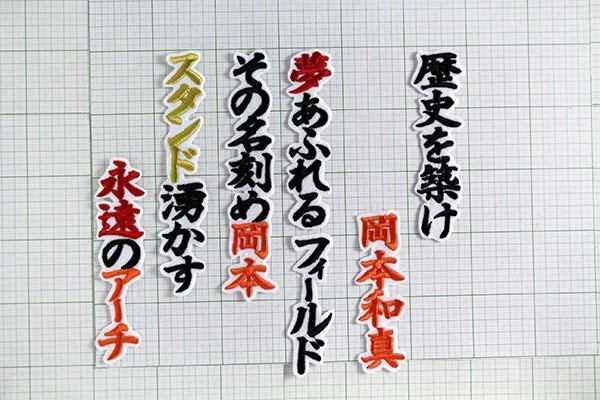 歴史を築け
岡本和真
夢あふれる フィールド
その名刻め岡本
スタンド湧かす
永遠のアーチ